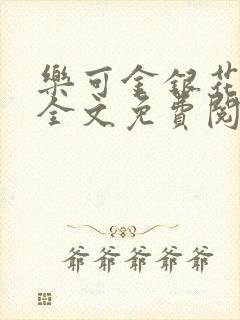 樂可金銀花
全文免費閱
爺爺爺爺爺